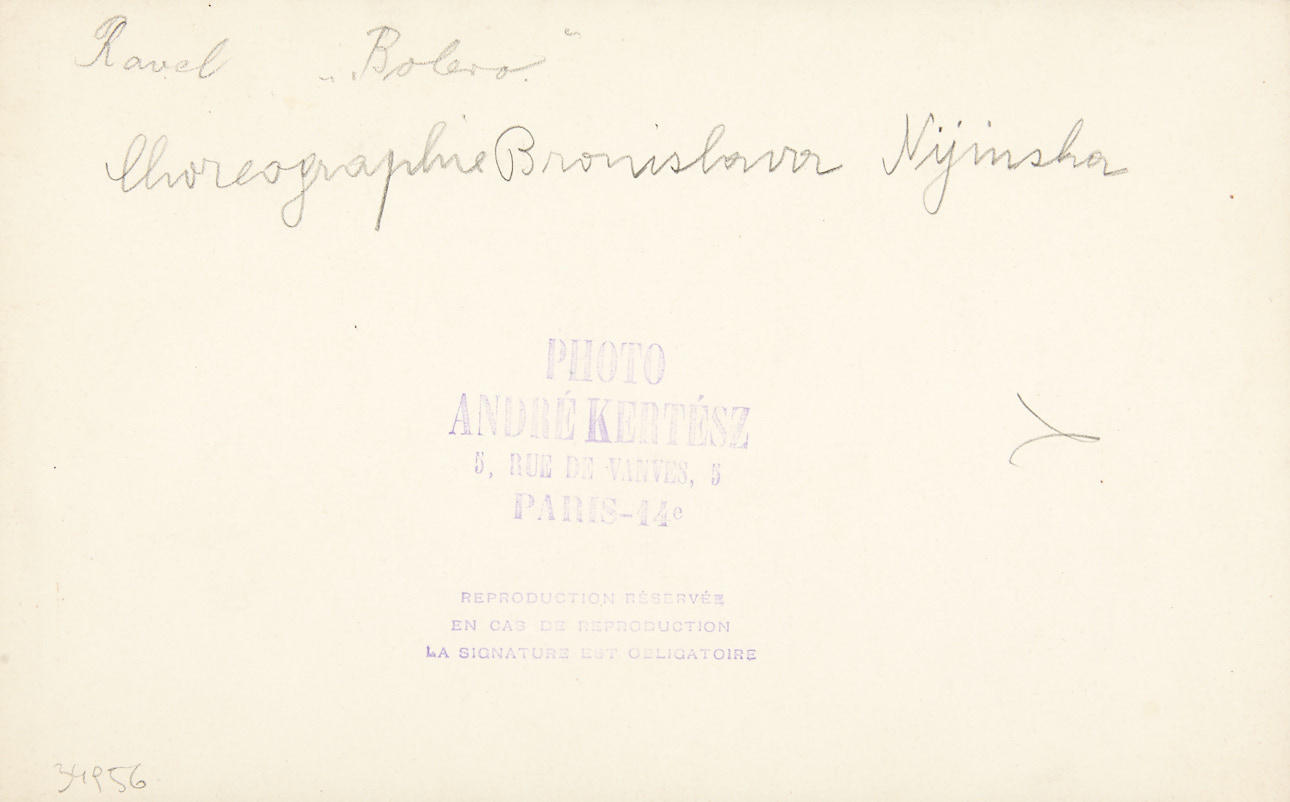 Ravel „Bolero“
Choreographie Bronislava Nijinska
PHOTO
ANDRÉ KERTÉSZ
5, RUE DE VANVES, 5
PARIS-14e
REPRODUCTION RÉSERVÉE
EN CAS DE REPRODUCTION
LA SIGNATURE EST OBLIGATOIRE
34956